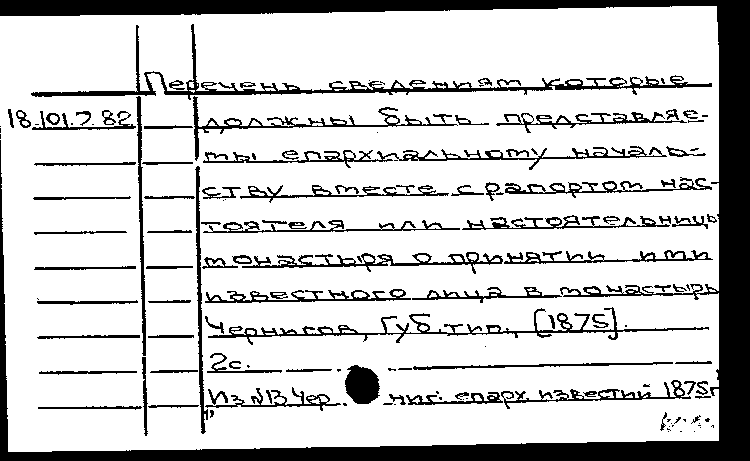 Перечень сведениям, которые
18.101.7.82 должны быть представляе-
мы епархиальному началь-
ству вместе с рапортом нас-
тоятеля или настоятельницы
монастыря о принятии ими
известного лица в монастырь
Чернигов, Губ. тип., [1875].
2с.
Из №13 Чер ниг. епарх. известий 1875г